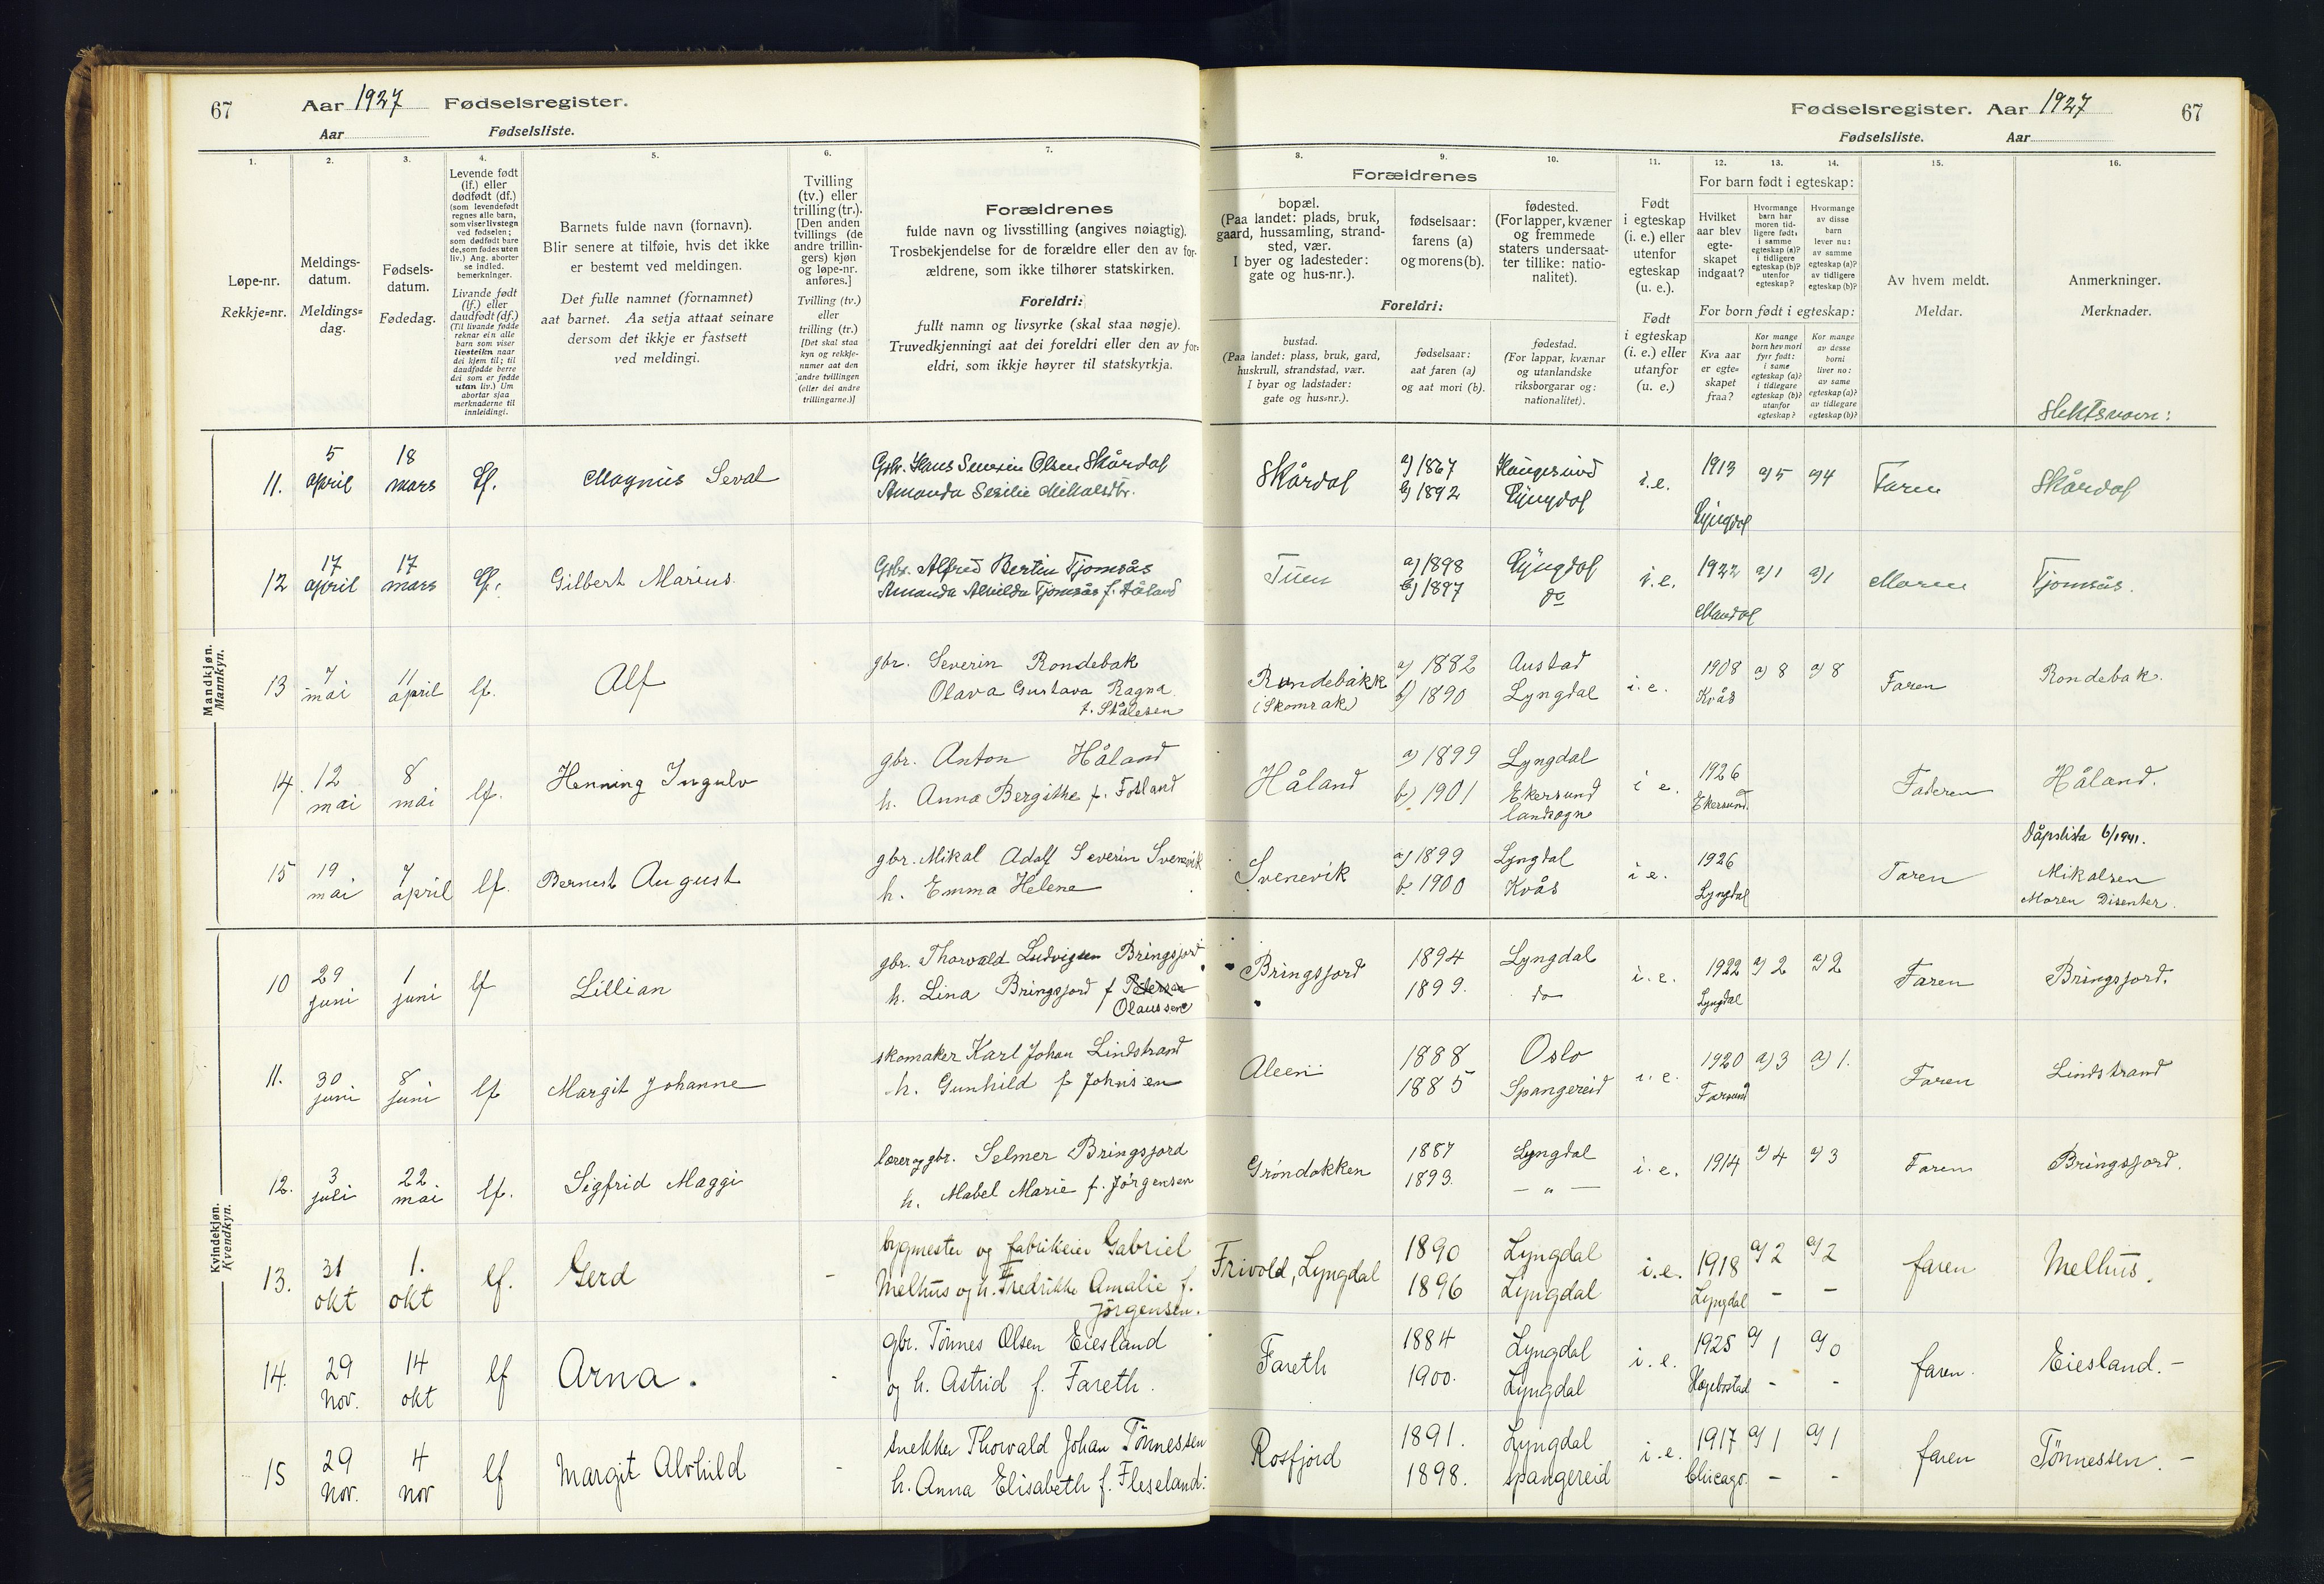 67 Aar 1927 Fødselsregister.
Aar Fødselsliste.
Fødselsregister. Aar 1927 67
Fødselsliste. Aar
1. 2. 3. 4. 5. 6. 7.
8. 9. 10. 11. 12. 13. 14. 15. 16.
Løpe-nr.
Rekkje-nr.
Meldings-
datum.
Meldings-
dag.
Fødsels-
datum.
Fødedag.
Levende født
(lf.) eller
dødfødt (df.)
(som levendefødt
regnes alle barn,
som viser livstegn
ved fødselen;
som dødfødt bare
de, som fødes uten
liv.) Ang. aborter
se indled.
bemerkninger.
Livande født
(lf.) eller
daudfødt (df.)
(Til livande fødde
reknar ein alle
barn som viser
livsteikn naar
dei kjem til; til
daudfødde berre
dei som er fødde
utan liv.) Um
abortar sjaa
merknaderne til
innleidingi.
Barnets fulde navn (fornavn).
Blir senere at tilføie, hvis det ikke
er bestemt ved meldingen.
Det fulle namnet (fornamnet)
aat barnet. Aa setja attaat seinare
dersom det ikkje er fastsett
ved meldingi.
Tvilling
(tv.) eller
trilling (tr.).
[Den anden
tvillings (de
andre trillin-
gers) kjøn
og løpe-nr.
anføres.]
Tvilling (tv.)
eller
trilling (tr.)
[Det skal staa
kyn og rekkje-
numer aat den
andre tvillingen
(eller dei andre
trillingarne.)]
Forældrenes
fulde navn og livsstilling (angives nøiagtig).
Trosbekjendelse for de forældre eller den av for-
ældrene, som ikke tilhører statskirken.
Foreldri:
fullt namn og livsyrke (skal staa nøgje).
Truvedkjenningi aat dei foreldri eller den av for-
eldri, som ikkje høyrer til statskyrkja.
Forældrenes
bopæl.
(Paa landet: plads, bruk,
gaard, hussamling, strand-
sted, vær.
I byer og ladesteder:
gate og hus-nr.).
fødselsaar:
farens (a)
og morens (b).
fødested.
(For lapper, kvæner
og fremmede
staters undersaat-
ter tillike: natio-
nalitet).
Foreldri:
bustad.
(Paa landet: plass, bruk, gard,
huskrull, strandstad, vær.
I byar og ladstader:
gate og hus-nr.).
fødselsaar:
aat faren (a)
og aat mori (b).
fødestad.
(For lappar, kvænar
og utanlandske
riksborgarar og:
nationalitet).
Født
i egteskap
(i. e.) eller
utenfor
egteskap
(u. e.).
Født
i egteskap
(i. e.) eller
utanfor
(u. e.)
For barn født i egteskap:
Hvilket
aar blev
egte-
skapet
indgaat?
Hvormange
barn har
moren tid-
ligere født:
i samme
egteskap (a)?
i tidligere
egteskap (b)?
utenfor
egteskap?
Hvormange
av disse
barn
lever nu:
av samme
egteskap (a)?
av tidligere
egteskap (b)?
For born født i egteskap:
Kva aar
er egte-
skapet
fraa?
Kor mange
born hev mori
fyrr født:
i same
egteskap (a)?
i tidlegare
egteskap (b)?
utanfor
egteskap?
Kor mange
av desse
borni
liver no:
av same
egteskap (a)?
av tidlegare
egteskap (b)?
Av hvem meldt.
Meldar.
Anmerkninger.
Merknader.
Slektsnavn:
Mandkjøn.
Mannkyn.
11. 5 april 18 mars lf. Magnus Seval
Gbr. Hans Severin Olsen Skårdal
Amanda Sesilie Mikalsdtr.
Skårdal a) 1867 Haugesund i.e. 1913 a) 5 a) 4 Faren Skårdal
b) 1892 Lyngdal Lyngdal
12 17 april 17 mars lf. Gilbert Marius.
Gbr. Alfred Bertin Tjomsås
Amanda Alvilda Tjomsås f. Håland
Tuen a) 1898 Lyngdal i.e. 1922 a) 1 a) 1 Moren Tjomsås.
b) 1897 do Mandal
13 7 mai 11 april lf. Alf
gbr. Severin Rondebak
Olava Gustava Ragna
f. Stålesen
Rondebakk a) 1882 Austad i.e. 1908 a) 8 a) 8 Faren Rondebak.
(Skomrak) b) 1890 Lyngdal Kvås
14. 12 mai 8 mai lf. Henning Ingulv
gbr. Anton Håland
h. Anna Bergithe f. Fotland
Håland a) 1899 Lyngdal i e. 1926 Faderen Håland.
b) 1901 Ekersund landsogn Ekersund.
15 19 mai 7 april lf. Bernert August
gbr. Mikal Adolf Severin Svenevik
h. Emma Helene
Svenevik a) 1899 Lyngdal i e. 1926 Faren
b. 1900 Kvås Lyngdal
Dåpslista 6/1941.
Mikalsen
Moren Disenter.
Kvindekjøn.
Kvendkyn.
10 29 juni 1 juni lf Lillian
gbr. Thorvald Ludvigsen Bringsjord
h. Lina Bringsjord f Pedersen
Olaussen
Bringsjord 1894 Lyngdal i.e. 1922 a) 2 a) 2 Faren Bringsjord.
1899. do Lyngdal
11. 30 juni 8 juni lf Margit Johanne
skomaker Karl Johan Lindstrand
h. Gunhild f Johnsen
Aleen 1888 Oslo i.e. 1920 a) 3 a) 1. Faren Lindstrand
1885 Spangereid Farsund
12. 3 juli 22 mai lf. Sigfrid Maggi
lærer og gbr. Selmer Bringsjord
h. Mabel Marie f. Jørgensen
Grøndokken 1887 Lyngdal i.e. 1914 a) 4 a) 3 Faren Bringsjord.
1893. — " —
13. 31 okt 1. okt lf. Gerd -
bygmester og fabrikeier Gabriel
Melhus og h. Fredrikke Amalie f.
Jørgensen.
Frivold, Lyngdal 1890 Lyngdal i.e. 1918 a) 2 a) 2 faren Melhus.
1896 Lyngdal Lyngdal - -
14. 29 nov. 14 okt lf Arna. -
gbr. Tønnes Olsen Eiesland
og h. Astrid f. Fareth.
Fareth 1884 Lyngdal i.e. 1925 a) 1 a) 0 faren. Eiesland. -
1900. Lyngdal Hægebostad - -
15 29 nov. 4 nov lf Margit Alvhild -
snekker Thorvald Johan Tønnessen
h. Anna Elisabeth f. Fleseland.
Rosfjord 1891. Lyngdal i.e. 1917 a) 1 a) 1 faren Tønnessen. -
1898. Spangereid Chicago. - -